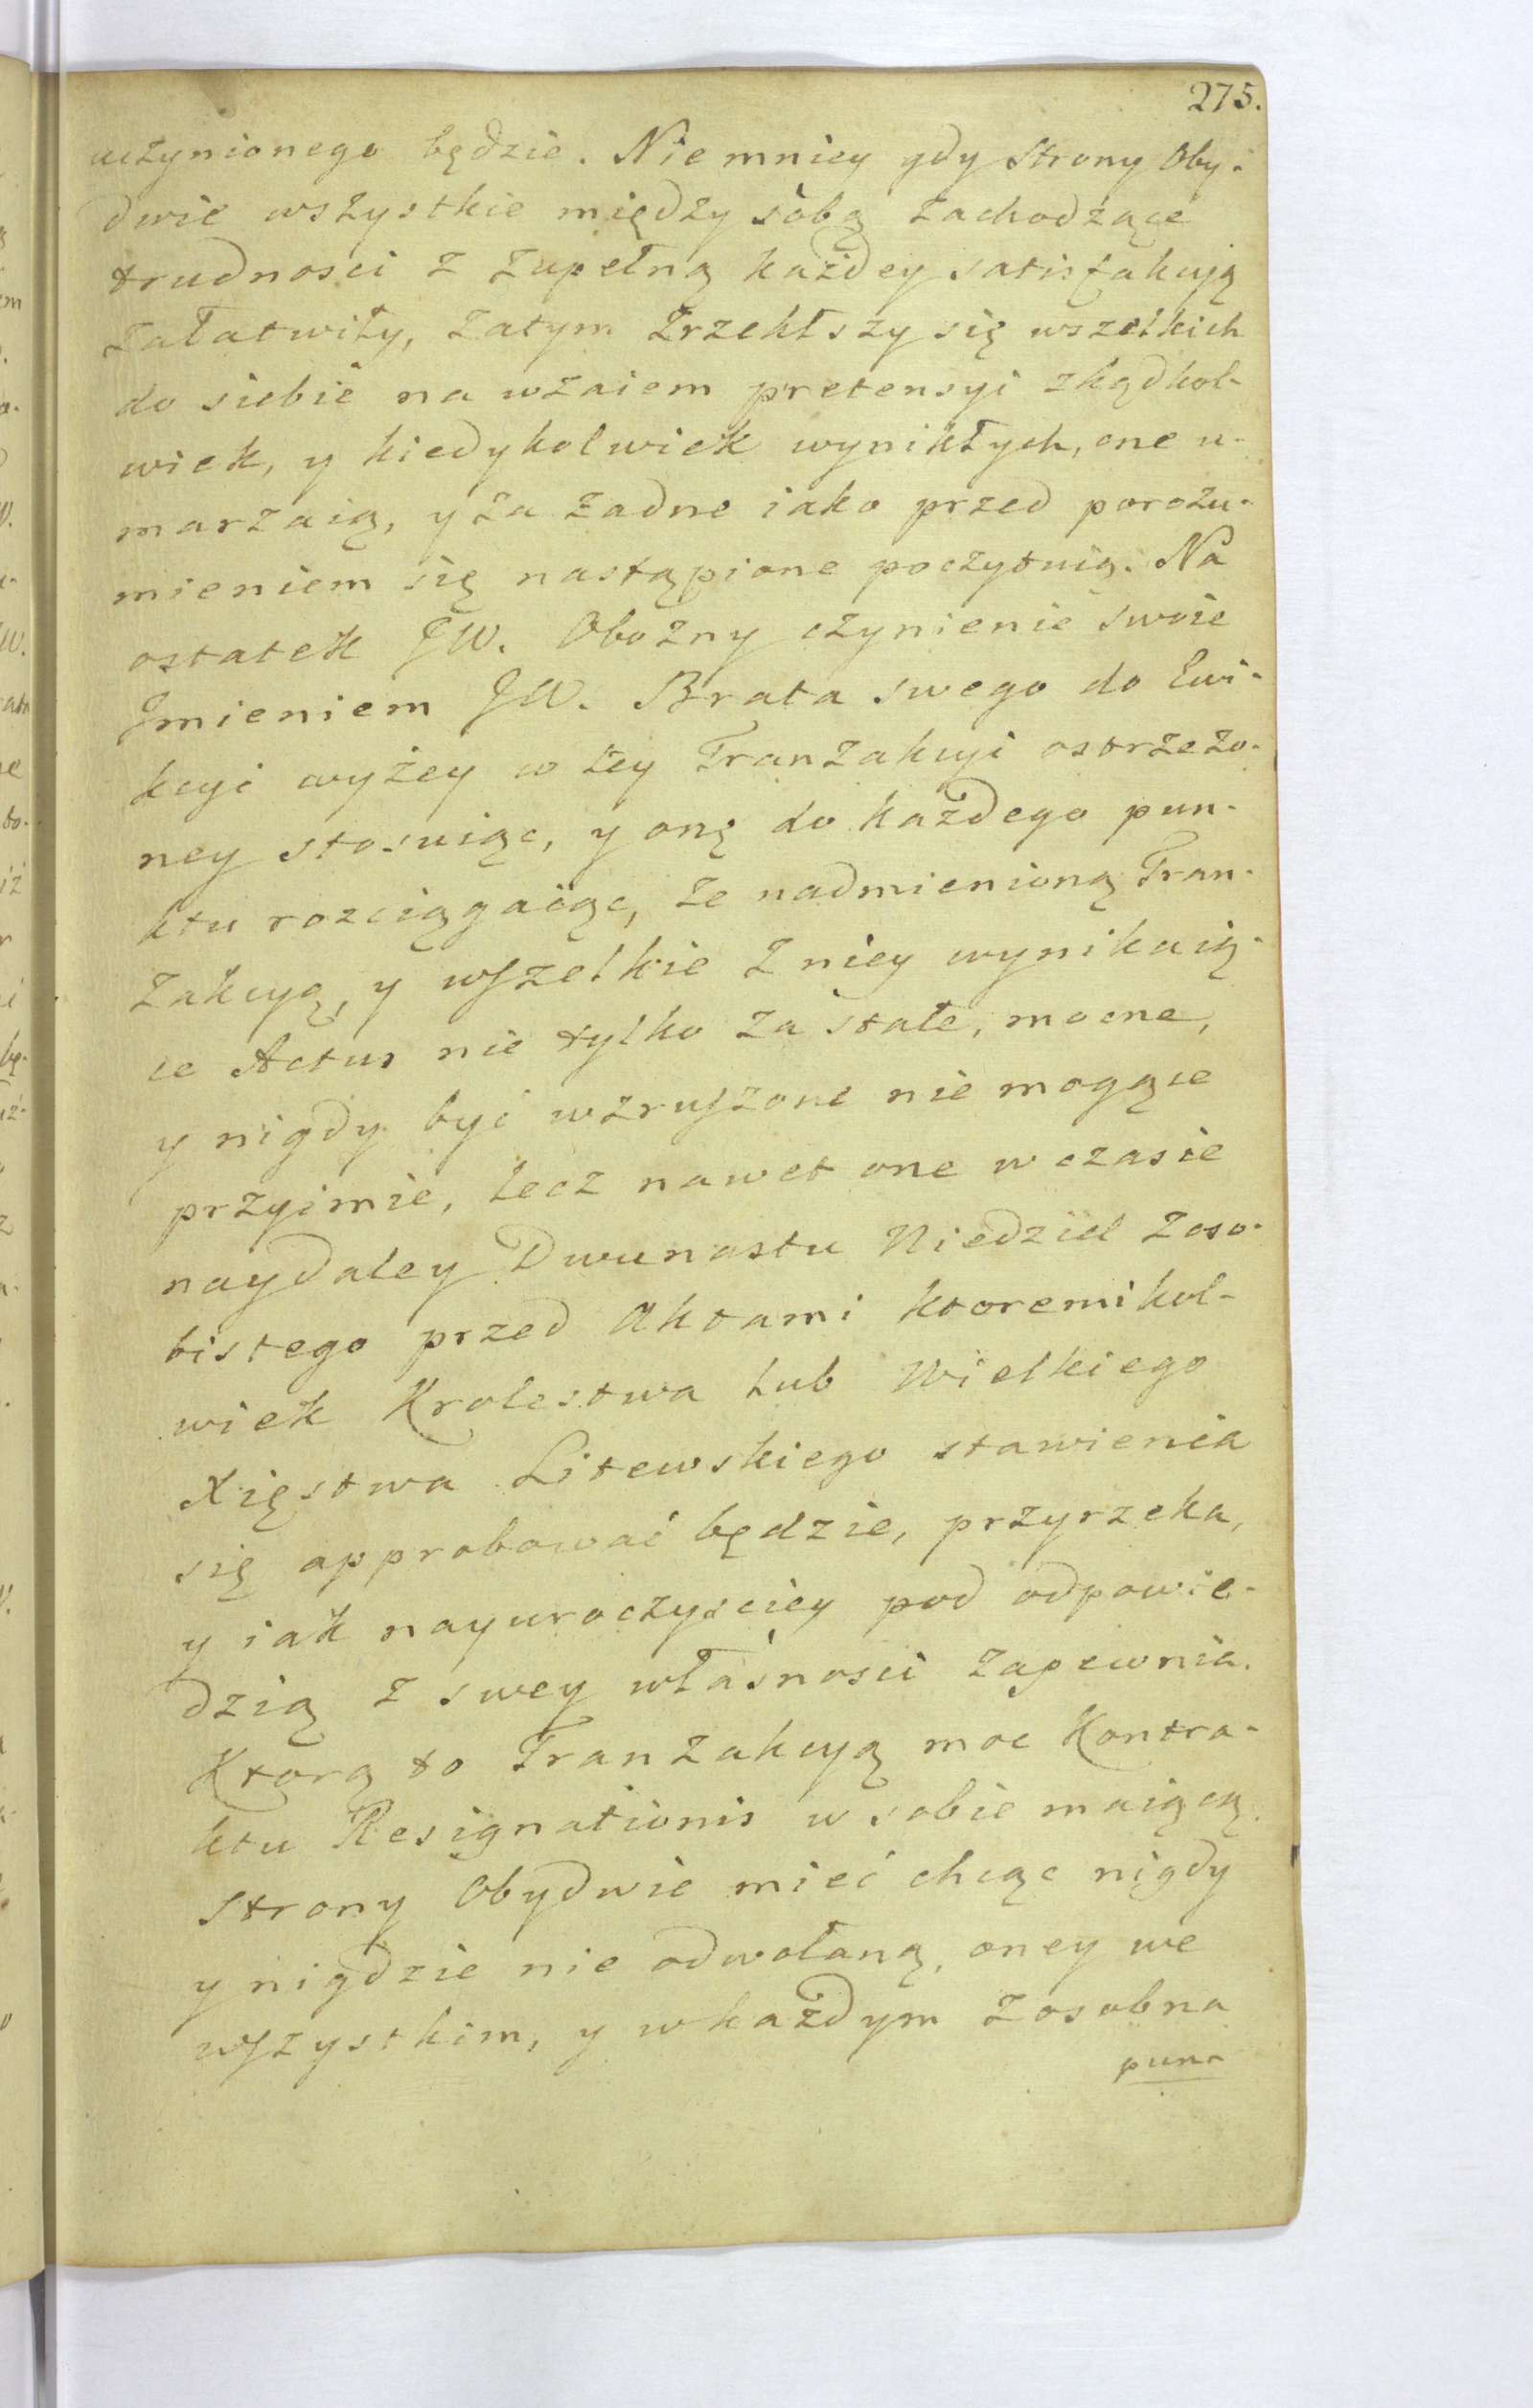 275.
uczynionego będzie. Niemniey gdy Strony Oby-
dwie wszystkie między sobą zachodzące
trudnosci z zupełną każdey satisfakcyą
załatwiły, zatym zrzekłszy się wszelkich
do siebie na wzaiem pretensyi zkądkol-
wiek, y kiedykolwiek wynikłych, one u-
marzaią, y za żadne iako przed porozu-
mieniem się nastąpione poczytuią. Na
ostatek JW. Obozny czynienie swoie
Jmieniem JW. Brata swego do Ewi-
kcyi wyżey w tey Tranzakcyi ostrzezo-
ney stosuiąc, y onę do każdego pun-
ktu rozciągaiąc, że nadmienioną Tran-
zakcyą, y wszelkie z niey wynikaią-
ce Actus nie tylko za stałe, mocne,
y nigdy być wzruszone nie mogące
przyimie, lecz nawet one w czasie
naydaley Dwunastu Niedziel zoso-
bistego przed Aktami ktoremikol-
wiek Krolestwa lub Wielkiego
Xięstwa Litewskiego stawienia
się approbować będzie, przyrzeka,
y iak nayuroczyściey pod odpowie-
dzią z swey własnosci zapewnia.
Ktorą to Tranzakcyą moc Kontra-
ktu Resignationis w sobie maiącą
Strony Obydwie mieć chcąc nigdy
y nigdzie nie odwołaną, oney we
wszystkim, y w każdym zosobna
pun-